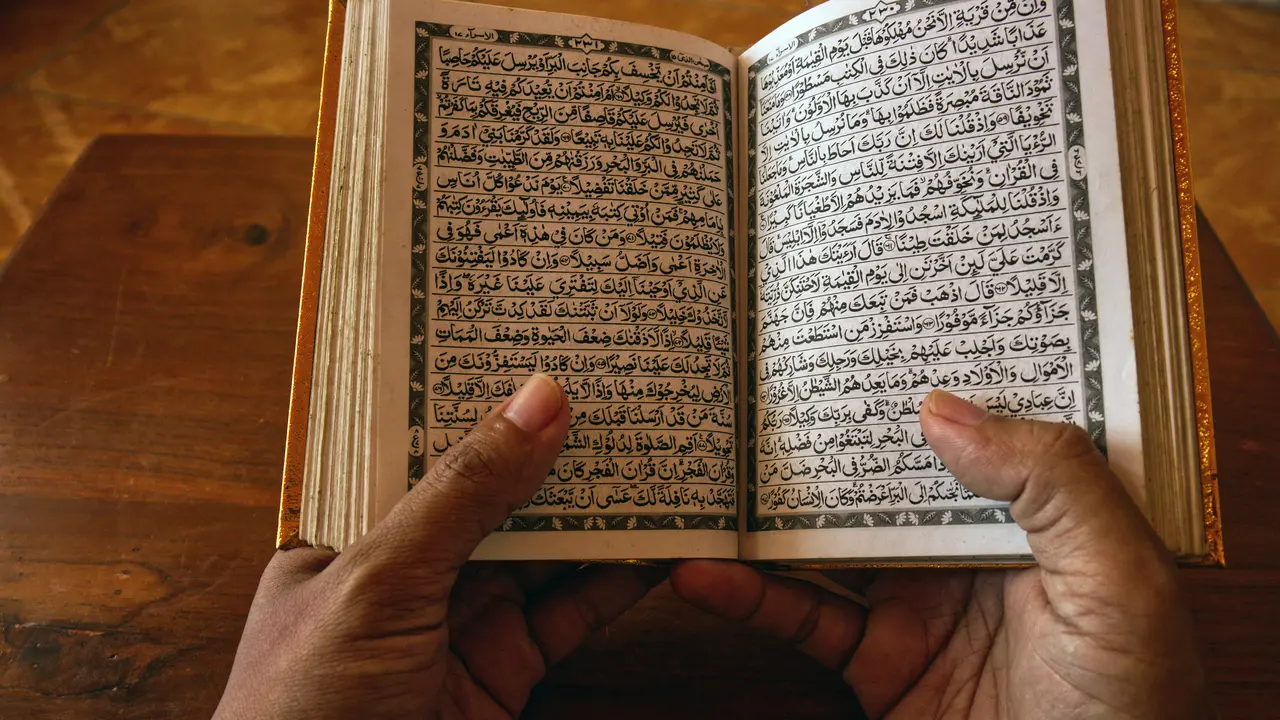 ٢٣٠
الاسرآء ١٧
وَاِنْ مِّنْ قَرْيَةٍ اِلَّا نَحْنُ مُهْلِكُوْهَا قَبْلَ يَوْمِ الْقِيٰمَةِ اَوْ مُعَذِّبُوْهَا
عَذَابًا شَدِيْدًا كَانَ ذٰلِكَ فِى الْكِتٰبِ مَسْطُوْرًا ٥٨ وَمَا مَنَعَنَآ
اَنْ نُّرْسِلَ بِالْاٰيٰتِ اِلَّآ اَنْ كَذَّبَ بِهَا الْاَوَّلُوْنَ وَاٰتَيْنَا
ثَمُوْدَ النَّاقَةَ مُبْصِرَةً فَظَلَمُوْا بِهَا وَمَا نُرْسِلُ بِالْاٰيٰتِ اِلَّا
تَخْوِيْفًا ٥٩ وَاِذْ قُلْنَا لَكَ اِنَّ رَبَّكَ اَحَاطَ بِالنَّاسِ وَمَا جَعَلْنَا
الرُّءْيَا الَّتِيْٓ اَرَيْنٰكَ اِلَّا فِتْنَةً لِّلنَّاسِ وَالشَّجَرَةَ الْمَلْعُوْنَةَ
فِى الْقُرْاٰنِ وَنُخَوِّفُهُمْ فَمَا يَزِيْدُهُمْ اِلَّا طُغْيَانًا كَبِيْرًا ٦٠
وَاِذْ قُلْنَا لِلْمَلٰٓئِكَةِ اسْجُدُوْا لِاٰدَمَ فَسَجَدُوْٓا اِلَّآ اِبْلِيْسَ قَالَ
ءَاَسْجُدُ لِمَنْ خَلَقْتَ طِيْنًا ٦١ قَالَ اَرَءَيْتَكَ هٰذَا الَّذِيْ
كَرَّمْتَ عَلَيَّ لَئِنْ اَخَّرْتَنِ اِلٰى يَوْمِ الْقِيٰمَةِ لَاَحْتَنِكَنَّ ذُرِّيَّتَهٗٓ
اِلَّا قَلِيْلًا ٦٢ قَالَ اذْهَبْ فَمَنْ تَبِعَكَ مِنْهُمْ فَاِنَّ جَهَنَّمَ
جَزَآؤُكُمْ جَزَآءً مَّوْفُوْرًا ٦٣ وَاسْتَفْزِزْ مَنِ اسْتَطَعْتَ مِنْهُمْ
بِصَوْتِكَ وَاَجْلِبْ عَلَيْهِمْ بِخَيْلِكَ وَرَجِلِكَ وَشَارِكْهُمْ فِى
الْاَمْوَالِ وَالْاَوْلَادِ وَعِدْهُمْ وَمَا يَعِدُهُمُ الشَّيْطٰنُ اِلَّا غُرُوْرًا ٦٤
اِنَّ عِبَادِيْ لَيْسَ سُلْطٰنٌ وَكَفٰى بِرَبِّكَ وَكِيْلًا ٦٥ رَبُّكُمُ
فِى الْبَحْرِ لِتَبْتَغُوْا مِنْ فَضْلِهٖ اِنَّهٗ
وَاِذَا مَسَّكُمُ الضُّرُّ فِى الْبَحْرِ ضَلَّ مَنْ
نَجّٰىكُمْ اِلَى الْبَرِّ اَعْرَضْتُمْ وَكَانَ الْاِنْسَانُ كَفُوْرًا ٦٧
٢٣١
الاسرآء ١٧
اَفَاَمِنْتُمْ اَنْ يَّخْسِفَ بِكُمْ جَانِبَ الْبَرِّ اَوْ يُرْسِلَ عَلَيْكُمْ حَاصِبًا
ثُمَّ لَا تَجِدُوْا لَكُمْ وَكِيْلًا ٦٨ اَمْ اَمِنْتُمْ اَنْ يُّعِيْدَكُمْ فِيْهِ تَارَةً
اُخْرٰى فَيُرْسِلَ عَلَيْكُمْ قَاصِفًا مِّنَ الرِّيْحِ فَيُغْرِقَكُمْ بِمَا كَفَرْتُمْ
ثُمَّ لَا تَجِدُوْا لَكُمْ عَلَيْنَا بِهٖ تَبِيْعًا ٦٩ وَلَقَدْ كَرَّمْنَا بَنِيْٓ اٰدَمَ وَ
حَمَلْنٰهُمْ فِى الْبَرِّ وَالْبَحْرِ وَرَزَقْنٰهُمْ مِّنَ الطَّيِّبٰتِ وَفَضَّلْنٰهُمْ
عَلٰى كَثِيْرٍ مِّمَّنْ خَلَقْنَا تَفْضِيْلًا ٧٠ يَوْمَ نَدْعُوْا كُلَّ اُنَاسٍ
بِاِمَامِهِمْ فَمَنْ اُوْتِيَ كِتٰبَهٗ بِيَمِيْنِهٖ فَاُولٰٓئِكَ يَقْرَءُوْنَ كِتٰبَهُمْ
وَلَا يُظْلَمُوْنَ فَتِيْلًا ٧١ وَمَنْ كَانَ فِيْ هٰذِهٖٓ اَعْمٰى فَهُوَ فِى
الْاٰخِرَةِ اَعْمٰى وَاَضَلُّ سَبِيْلًا ٧٢ وَاِنْ كَادُوْا لَيَفْتِنُوْنَكَ
عَنِ الَّذِيْٓ اَوْحَيْنَآ اِلَيْكَ لِتَفْتَرِيَ عَلَيْنَا غَيْرَهٗ وَاِذًا
لَّاتَّخَذُوْكَ خَلِيْلًا ٧٣ وَلَوْلَآ اَنْ ثَبَّتْنٰكَ لَقَدْ كِدْتَّ تَرْكَنُ اِلَيْهِمْ
شَيْئًا قَلِيْلًا ٧٤ اِذًا لَّاَذَقْنٰكَ ضِعْفَ الْحَيٰوةِ وَضِعْفَ الْمَمَاتِ
ثُمَّ لَا تَجِدُ لَكَ عَلَيْنَا نَصِيْرًا ٧٥ وَاِنْ كَادُوْا لَيَسْتَفِزُّوْنَكَ مِنَ
الْاَرْضِ لِيُخْرِجُوْكَ مِنْهَا وَاِذًا لَّا اِلَّا قَلِيْلًا ٧٦
سُنَّةَ مَنْ قَدْ اَرْسَلْنَا قَبْلَكَ مِنْ لِسُنَّتِنَا
تَحْوِيْلًا ٧٧ اَقِمِ الصَّلٰوةَ لِدُلُوْكِ
وَقُرْاٰنَ الْفَجْرِ اِنَّ قُرْاٰنَ الْفَجْرِ كَانَ
فَتَهَجَّدْ بِهٖ نَافِلَةً لَّكَ عَسٰٓى اَنْ يَّبْعَثَكَ